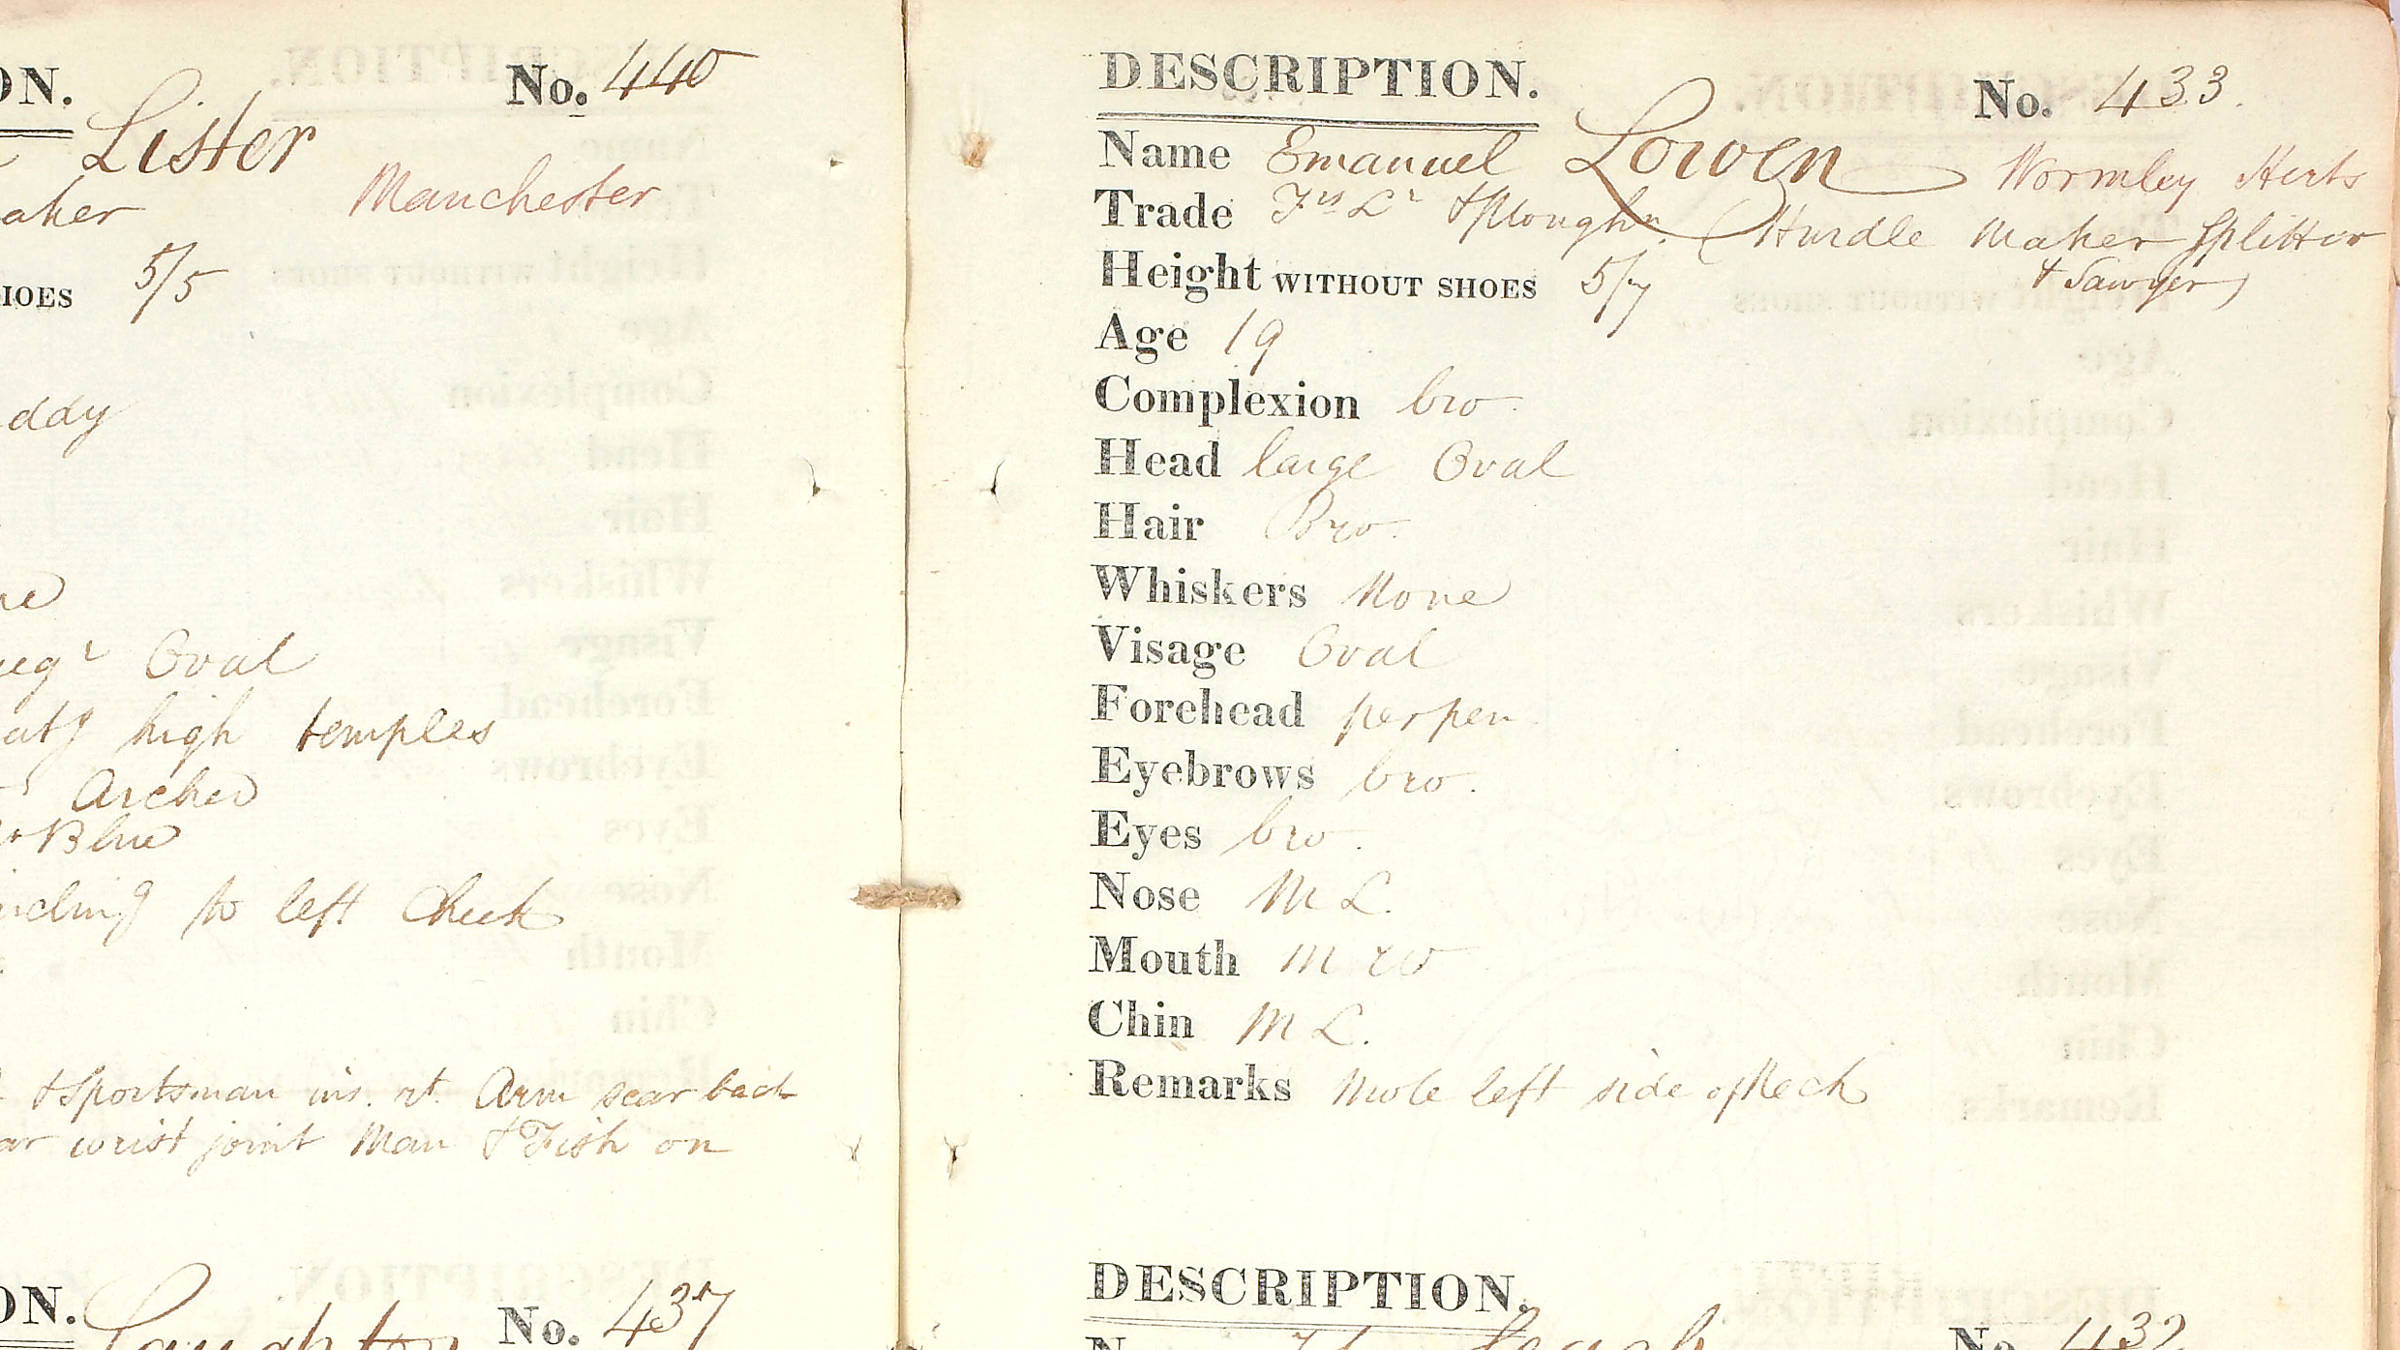 ON. No. 440
Lister
aker Manchester
HOES 5/5
ddy
ne
Oval
high temples
Arched
Blue
inclin^g to left Cheek
& Sportsman ins. rt. Arm scar back
ar wrist joint Man & Fish on
ON. No. 437
DESCRIPTION. No. 433.
Name Emanuel Lowen Wormley Herts
Trade F^m L^r & Plough^n. (Hurdle Maker Splitter
& Sawyer)
Height WITHOUT SHOES 5/7
Age 19
Complexion bro.
Head large Oval
Hair Bro.
Whiskers None
Visage Oval
Forehead perpen.
Eyebrows bro.
Eyes bro.
Nose M L.
Mouth M W
Chin M L.
Remarks Mole left side of Neck
DESCRIPTION.
No. 432